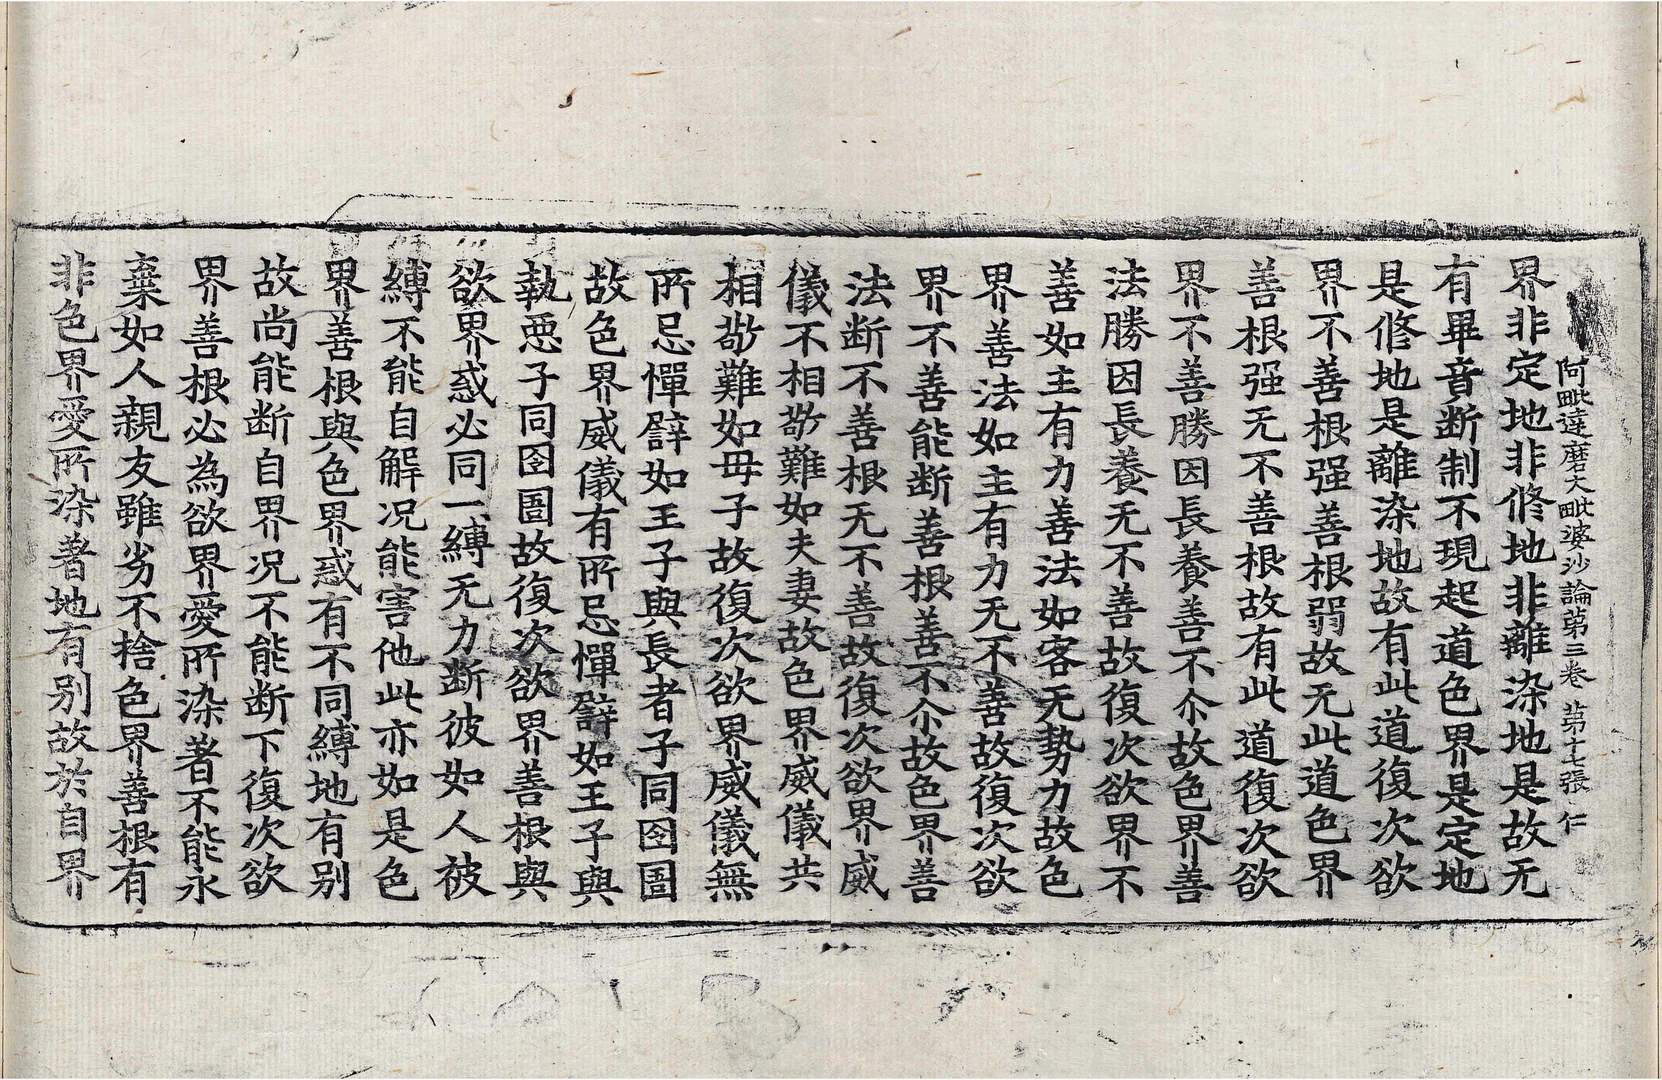 阿毗達磨大毗婆沙論第三卷 第十七張 仁
界非定地非修地非離染地是故无
有畢竟断制不現起道色界是定地
是修地是離染地故有此道復次欲
界不善根强善根弱故无此道色界
善根强无不善根故有此道復次欲
界不善勝因長養善不尒故色界善
法勝因長養无不善故復次欲界不
善如主有力善法如客无勢力故色
界善法如主有力无不善故復次欲
界不善能断善根善不尒故色界善
法断不善根无不善故復次欲界威
儀不相敬難如夫妻故色界威儀共
相敬難如母子故復次欲界威儀無
所忌憚譬如王子與長者子同囹圄
故色界威儀有所忌憚譬如王子與
執惡子同囹圄故復次欲界善根與
欲界惑必同一縛无力断彼如人被
縛不能自解况能害他此亦如是色
界善根與色界惑有不同縛地有別
故尚能断自界况不能断下復次欲
界善根必為欲界愛所染著不能永
棄如人親友雖劣不捨色界善根有
非色界愛所染著地有別故於自界